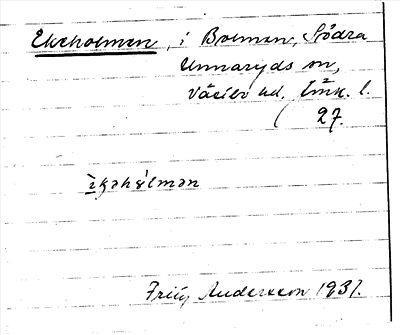 Ekeholmen, i Bolmen, Södra
Unnaryds sn,
Västbo hd. Jönk. l.
( 27.
ìkəhɤ́lmən
Fritz Andersson 1931.